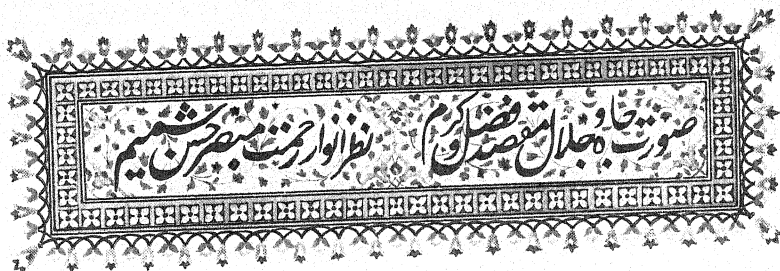 صورت جاه و جلال مقصد فضل و کرم نظر انوار رحمت مبتصر حسن شمیم